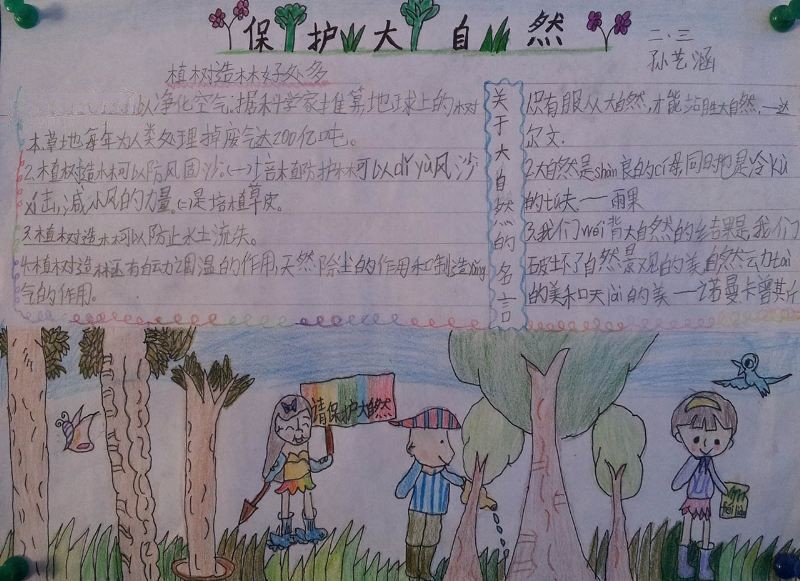 保护大自然
二、三
孙艺涵
植树造林好处多
以净化空气,据科学家推算,地球上的树
木草地每年为人类处理掉废气达200亿吨。
2.植树造林可以防风固沙。(一)培植防护林可以dǐ yù风沙
xí击,减小风的力量。(二)是培植草皮。
3.植树造林可以防止水土流失。
4.植树造林还有自动调温的作用,天然除尘的作用和制造yǎng
气的作用。
关于大自然的名言
只有服从大自然,才能战胜大自然。——达
尔文.
2.大自然是shàn良的cí母,同时也是冷kù
的tú夫。——雨果
3.我们wéi背大自然的结果是,我们
破坏了自然景观的美,自然动tài
的美和天lài的美——诺曼·卡曾其斤
请保护大自然